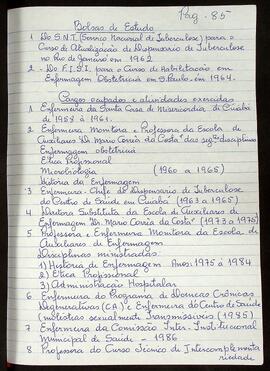 Pag. 85
Bolsas de Estudo
1 Do S.N.T. (Serviço Nacional de Tuberculose) para o
Curso de Atualização de Dispensário de Tuberculose
no Rio de Janeiro em 1962
2 - Do F.I.S.I. para o Curso de Habilitação em
Enfermagem Obstetrícia em S. Paulo - em 1964.
Cargos ocupados e atividades exercidas
1 Enfermeira da Santa Casa de Misericordia de Cuiabá
de 1959 à 1961.
2 Enfermeira Monitora e Professora da Escola de
Auxiliares "Dr. Mario Corrêa da Costa" das segts disciplinas
Enfermagem obstetrica
Etica Profissional
Microbiologia (1960 a 1965)
Historia da Enfermagem
3 Enfermeira - Chefe do Dispensário de Tuberculose
do Centro de Saúde em Cuiabá (1963 a 1965)
4 Diretora Substituta da Escola de Auxiliares de
Enfermagem "Dr. Mario Corrêa da Costa" (1973 a 1975)
5 Professora e Enfermeira Monitora da Escola de
Auxiliares de Enfermagem
Disciplinas ministradas:
1) Historia de Enfermagem Anos: 1975 à 1984
2) Etica Profissional
3) Administração Hospitalar
6 Enfermeira do Programa de Doenças Crônicas
Degenerativas (CA) e Enfermeira do Centro de Saúde
(molestias sexualmente Transmissiveis (1985)
7 Enfermeira da Comissão Inter-Institucional
Municipal de Saúde - 1986
8 Professora do Curso Técnico de Intercomplementa
riedade